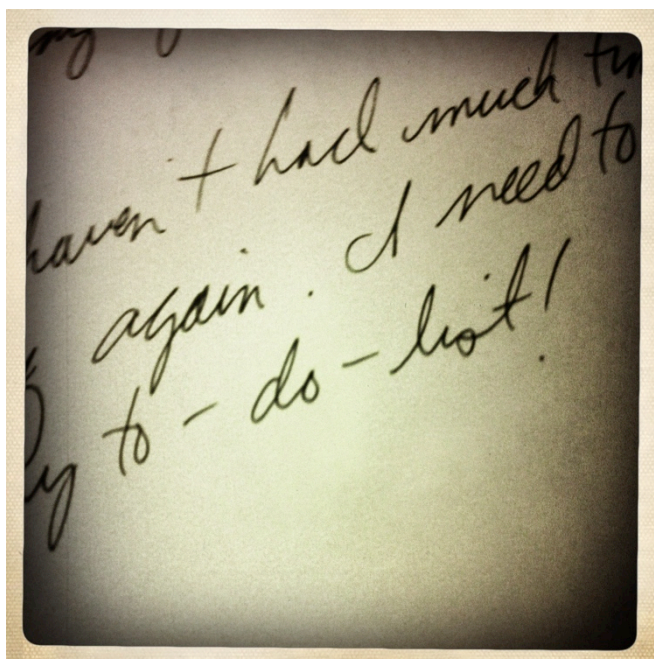 my
haven't had much
again. I need to
to-do-list!